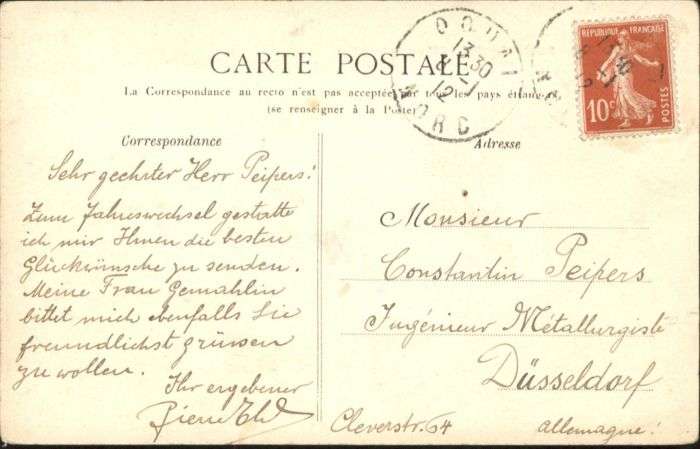 CARTE POSTALE
La Correspondance au recto n'est pas acceptée par tous les pays étrangers
(se renseigner à la Poste)
Correspondance
Sehr geehrter Herr Peipers!
Zum Jahreswechsel gestatte
ich mir Ihnen die besten
Glückwünsche zu senden.
Meine Frau Gemahlin
bittet mich ebenfalls Sie
freundlichst grüssen
zu wollen.
Ihr ergebener
Pierre
Adresse
Monsieur
Constantin Peipers
Ingénieur Métallurgiste
Düsseldorf
Cleverstr. 64
Allemagne!
DOUAI
13 30
1
12
NORD
REPUBLIQUE FRANÇAISE
10c
POSTES